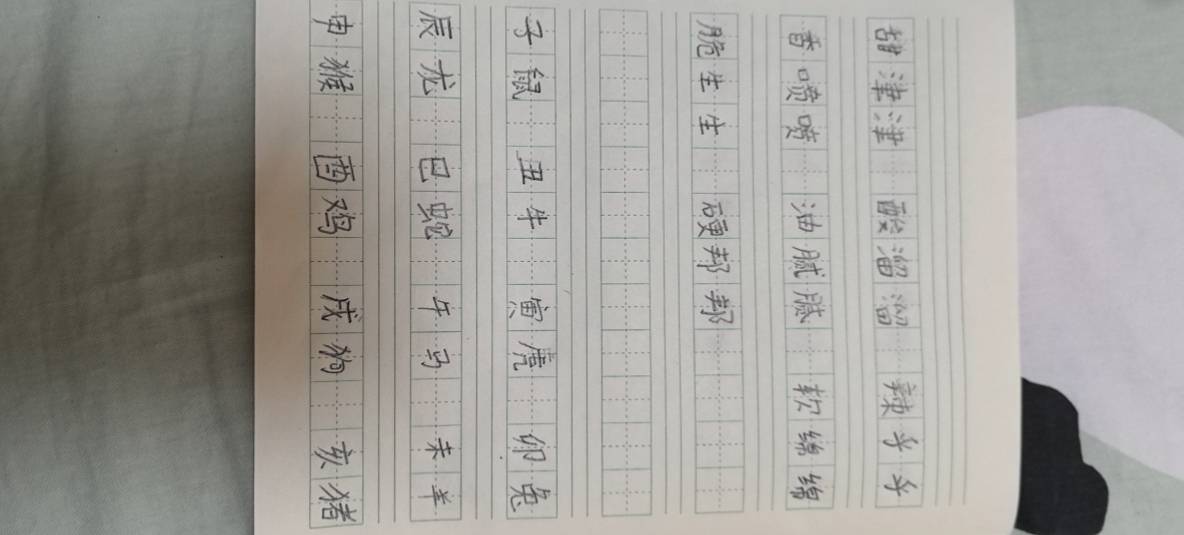 甜津津 酸溜溜 辣乎乎
香喷喷 油腻腻 软绵绵
脆生生 硬邦邦
子鼠 丑牛 寅虎 卯兔
辰龙 巳蛇 午马 未羊
申猴 酉鸡 戌狗 亥猪